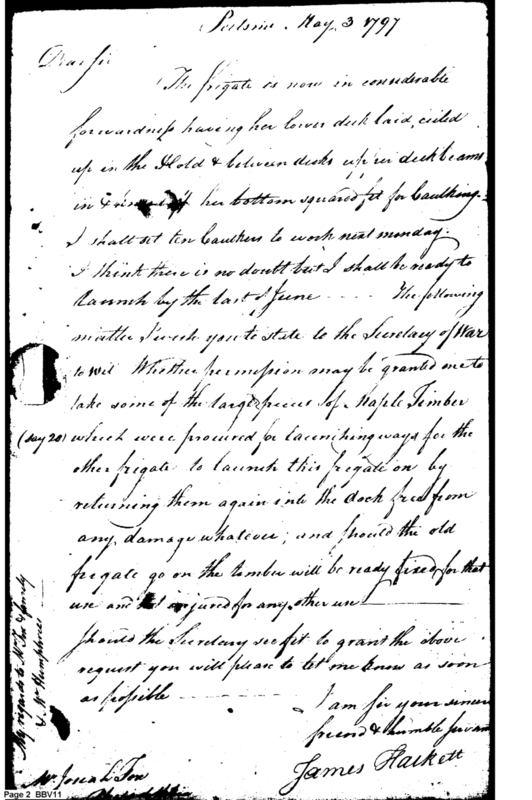 Portsmo May 3 1797
Dear Sir
The frigate is now in considerable
forwardness having her lower deck laid, ceiled
up in the Hold & between decks upper deck beams
in & her bottom squared fit for Caulking.
I shall set ten Caulkers to work next monday.
I think there is no doubt but I shall be ready to
launch by the last of June The following
matter I wish you to state to the Secretary of War
to wit Whether permission may be granted me to
take some of the large pieces of Maple Timber
(say 20) which were procured for launching ways for the
other frigate to launch this frigate on by
returning them again into the dock free from
any damage whatever; and should the old
frigate go on the timber will be ready fixed for that
use and not injured for any other use
Should the Secretary see fit to grant the above
request you will please to let me know as soon
as possible
I am sir your sincere
friend & humble servant
James Hackett
Mr Josiah Fox
My regards to Mr Fox & family
& Mr Humphries
Page 2 BBV11